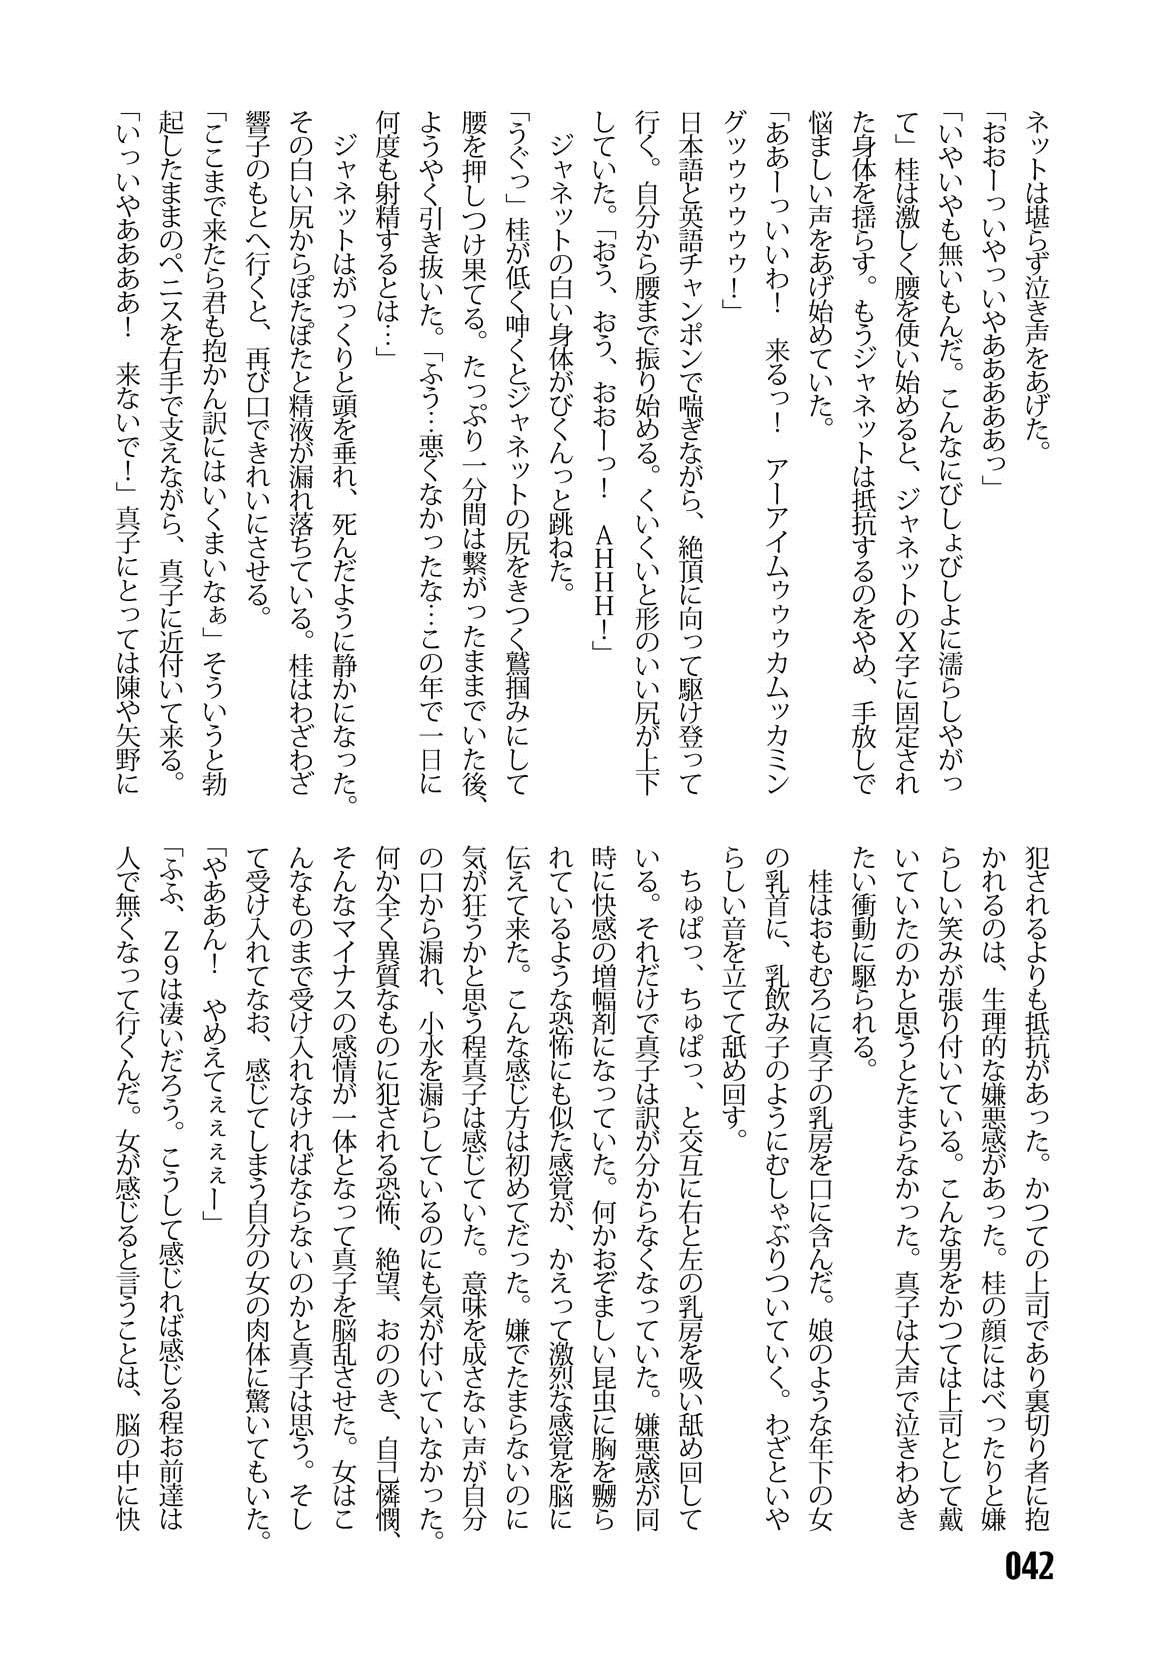 ネットは堪らず泣き声をあげた。
「おおーっいやっいやああああっ」
「いやいやも無いもんだ。こんなにびしょびしよに濡らしやがっ
て」桂は激しく腰を使い始めると、ジャネットのX字に固定され
た身体を揺らす。もうジャネットは抵抗するのをやめ、手放しで
悩ましい声をあげ始めていた。
「ああーっいいわ！　来るっ！　アーアイムゥゥゥカムッカミン
グッゥゥゥゥゥ！」
日本語と英語チャンポンで喘ぎながら、絶頂に向って駆け登って
行く。自分から腰まで振り始める。くいくいと形のいい尻が上下
していた。「おう、おう、おおーっ！　AHHH！」
　ジャネットの白い身体がびくんっと跳ねた。
「うぐっ」桂が低く呻くとジャネットの尻をきつく鷲掴みにして
腰を押しつけ果てる。たっぷり一分間は繋がったままでいた後、
ようやく引き抜いた。「ふう…悪くなかったな…この年で一日に
何度も射精するとは…」
　ジャネットはがっくりと頭を垂れ、死んだように静かになった。
その白い尻からぽたぽたと精液が漏れ落ちている。桂はわざわざ
響子のもとへ行くと、再び口できれいにさせる。
「ここまで来たら君も抱かん訳にはいくまいなぁ」そういうと勃
起したままのペニスを右手で支えながら、真子に近付いて来る。
「いっいやああああ！　来ないで！」真子にとっては陳や矢野に
犯されるよりも抵抗があった。かつての上司であり裏切り者に抱
かれるのは、生理的な嫌悪感があった。桂の顔にはべったりと嫌
らしい笑みが張り付いている。こんな男をかつては上司として戴
いていたのかと思うとたまらなかった。真子は大声で泣きわめき
たい衝動に駆られる。
　桂はおもむろに真子の乳房を口に含んだ。娘のような年下の女
の乳首に、乳飲み子のようにむしゃぶりついていく。わざといや
らしい音を立てて舐め回す。
　ちゅぱっ、ちゅぱっ、と交互に右と左の乳房を吸い舐め回して
いる。それだけで真子は訳が分からなくなっていた。嫌悪感が同
時に快感の増幅剤になっていた。何かおぞましい昆虫に胸を嬲ら
れているような恐怖にも似た感覚が、かえって激烈な感覚を脳に
伝えて来た。こんな感じ方は初めてだった。嫌でたまらないのに
気が狂うかと思う程真子は感じていた。意味を成さない声が自分
の口から漏れ、小水を漏らしているのにも気が付いていなかった。
何か全く異質なものに犯される恐怖、絶望、おののき、自己憐憫、
そんなマイナスの感情が一体となって真子を脳乱させた。女はこ
んなものまで受け入れなければならないのかと真子は思う。そし
て受け入れてなお、感じてしまう自分の女の肉体に驚いてもいた。
「やああん！　やめえてぇぇぇぇー」
「ふふ、Z9は凄いだろう。こうして感じれば感じる程お前達は
人で無くなって行くんだ。女が感じると言うことは、脳の中に快
042